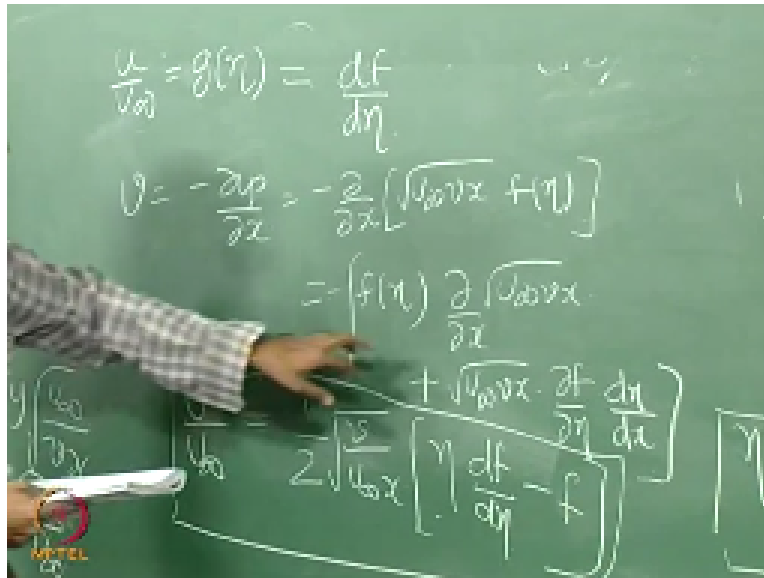 u/U∞ = g(η) = df/dη.
v = -∂ψ/∂x = -∂/∂x [√(U∞νx) f(η)]
= -[f(η) ∂/∂x √(U∞νx).
+ √(U∞νx) · ∂f/∂η dη/dx]
y √(U∞/νx)
v/U∞ = 1/2 √(ν/(U∞x)) [η df/dη - f]
[η
NPTEL